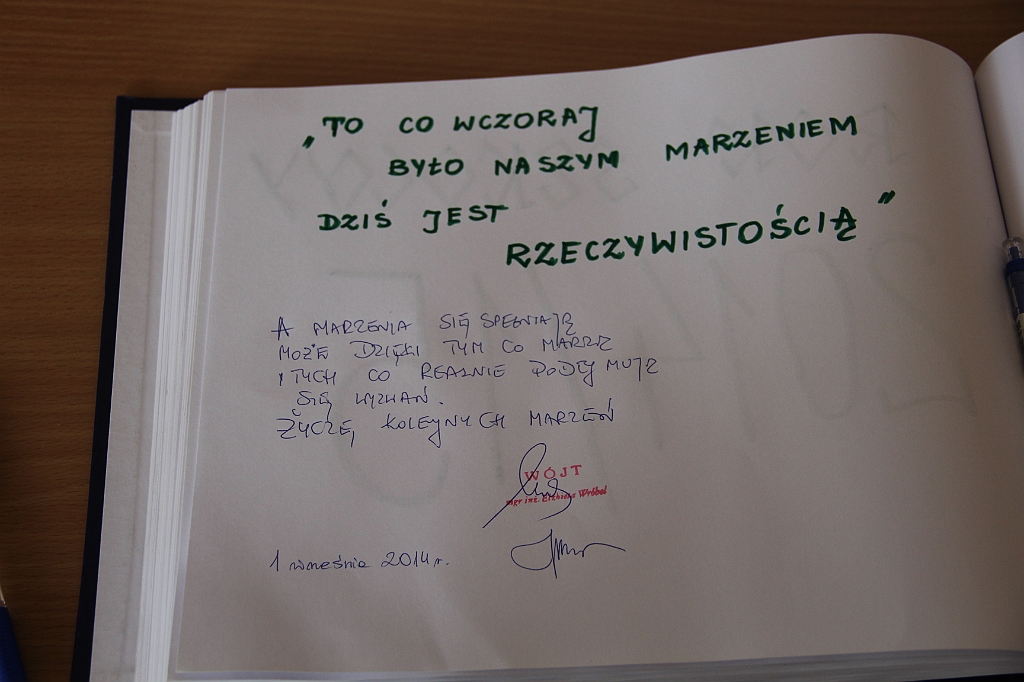 „TO CO WCZORAJ
BYŁO NASZYM MARZENIEM
DZIŚ JEST
RZECZYWISTOŚCIĄ”
A MARZENIA SIĘ SPEŁNIAJĄ
MOŻE DZIĘKI TYM CO MARZĄ
I TYCH CO REALNIE PODEJMUJĄ
SIĘ WYZWAŃ.
ŻYCZĘ KOLEJNYCH MARZEŃ
WÓJT
mgr inż. Elżbieta Wróbel
1 września 2014 r.